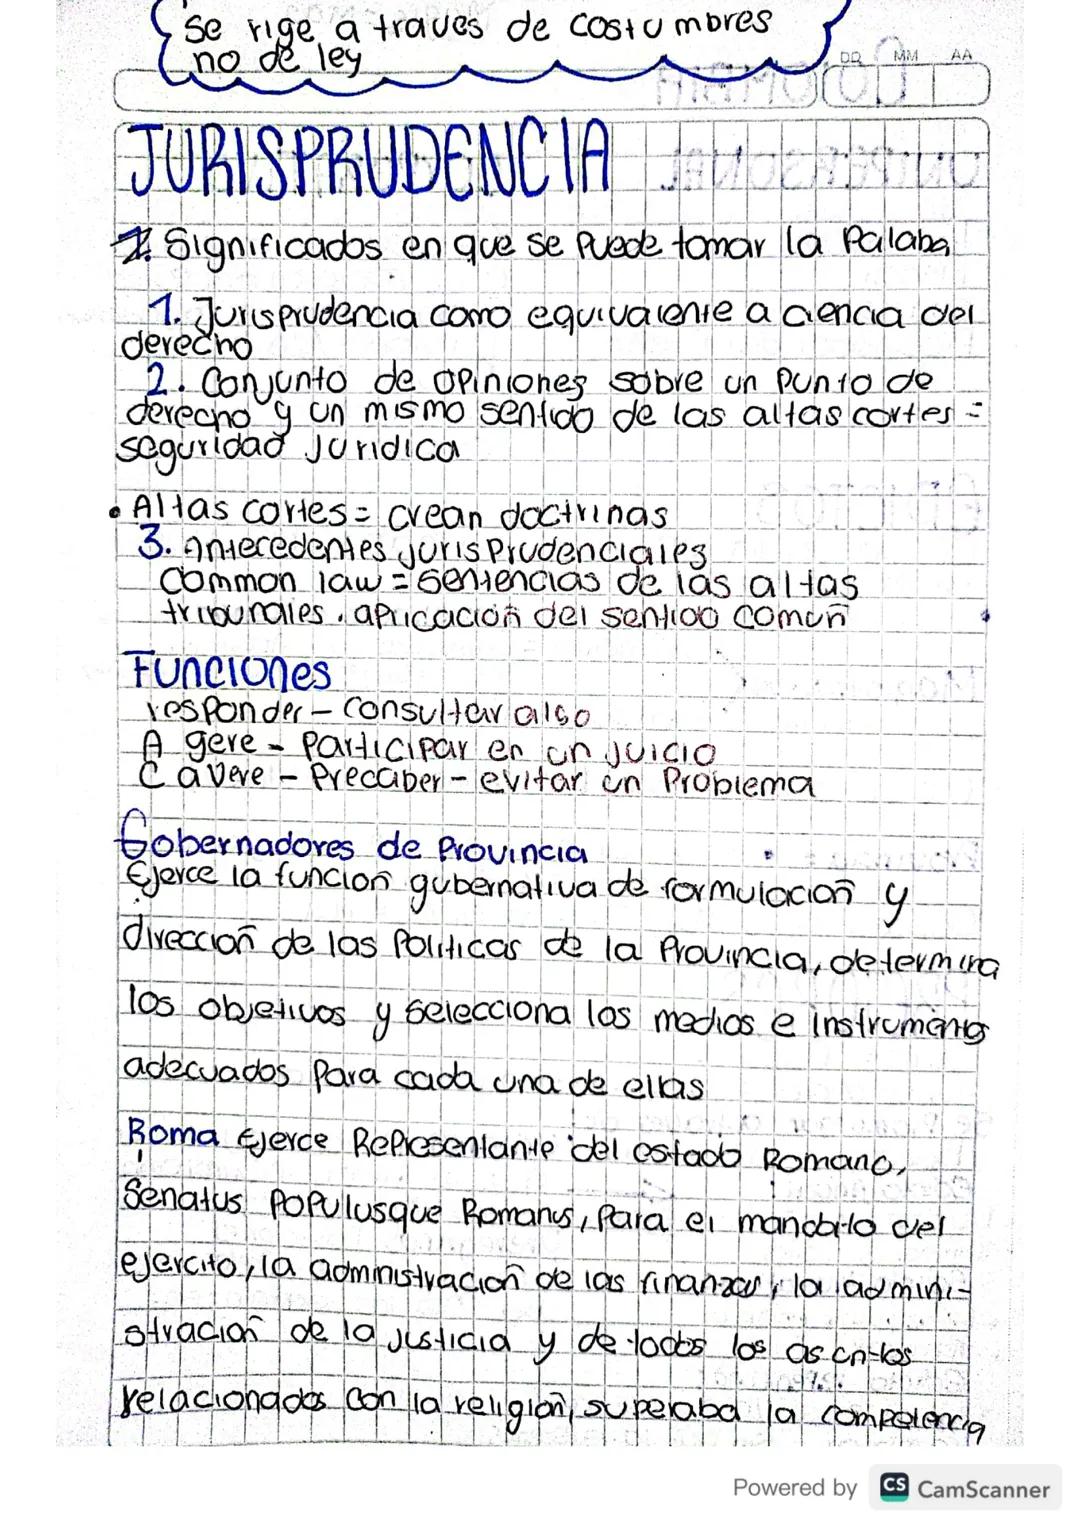 se rige a traves de costumbres
no de ley
DD MM AA
JURISPRUDENCIA
1. Significados en que se puede tomar la palaba,
1. Jurisprudencia como equivalente a ciencia del
derecho
2. Conjunto de opiniones sobre un punto de
derecho y un mismo sentido de las altas cortes =
seguridad Juridica
• Altas cortes = crean doctrinas
3. Antecedentes jurisprudenciales
Common law = sentencias de las altas
tribunales. aplicación del sentido común
Funciones
responder - consultar algo
A gere - Participar en un juicio
Cavere - Precaber - evitar un Problema
Gobernadores de Provincia
Ejerce la función gubernativa de formulación y
dirección de las Politicas de la Provincia, determina
los objetivos y selecciona los medios e instrumentos
adecuados Para cada una de ellas
Roma Ejerce Representante del estado Romano,
Senatus Populusque Romanus, Para el mandato del
ejercito, la administración de las finanzas, la admini-
stración de la justicia y de todos los asuntos
relacionados con la religión, superaba la competencia
Powered by CS CamScanner